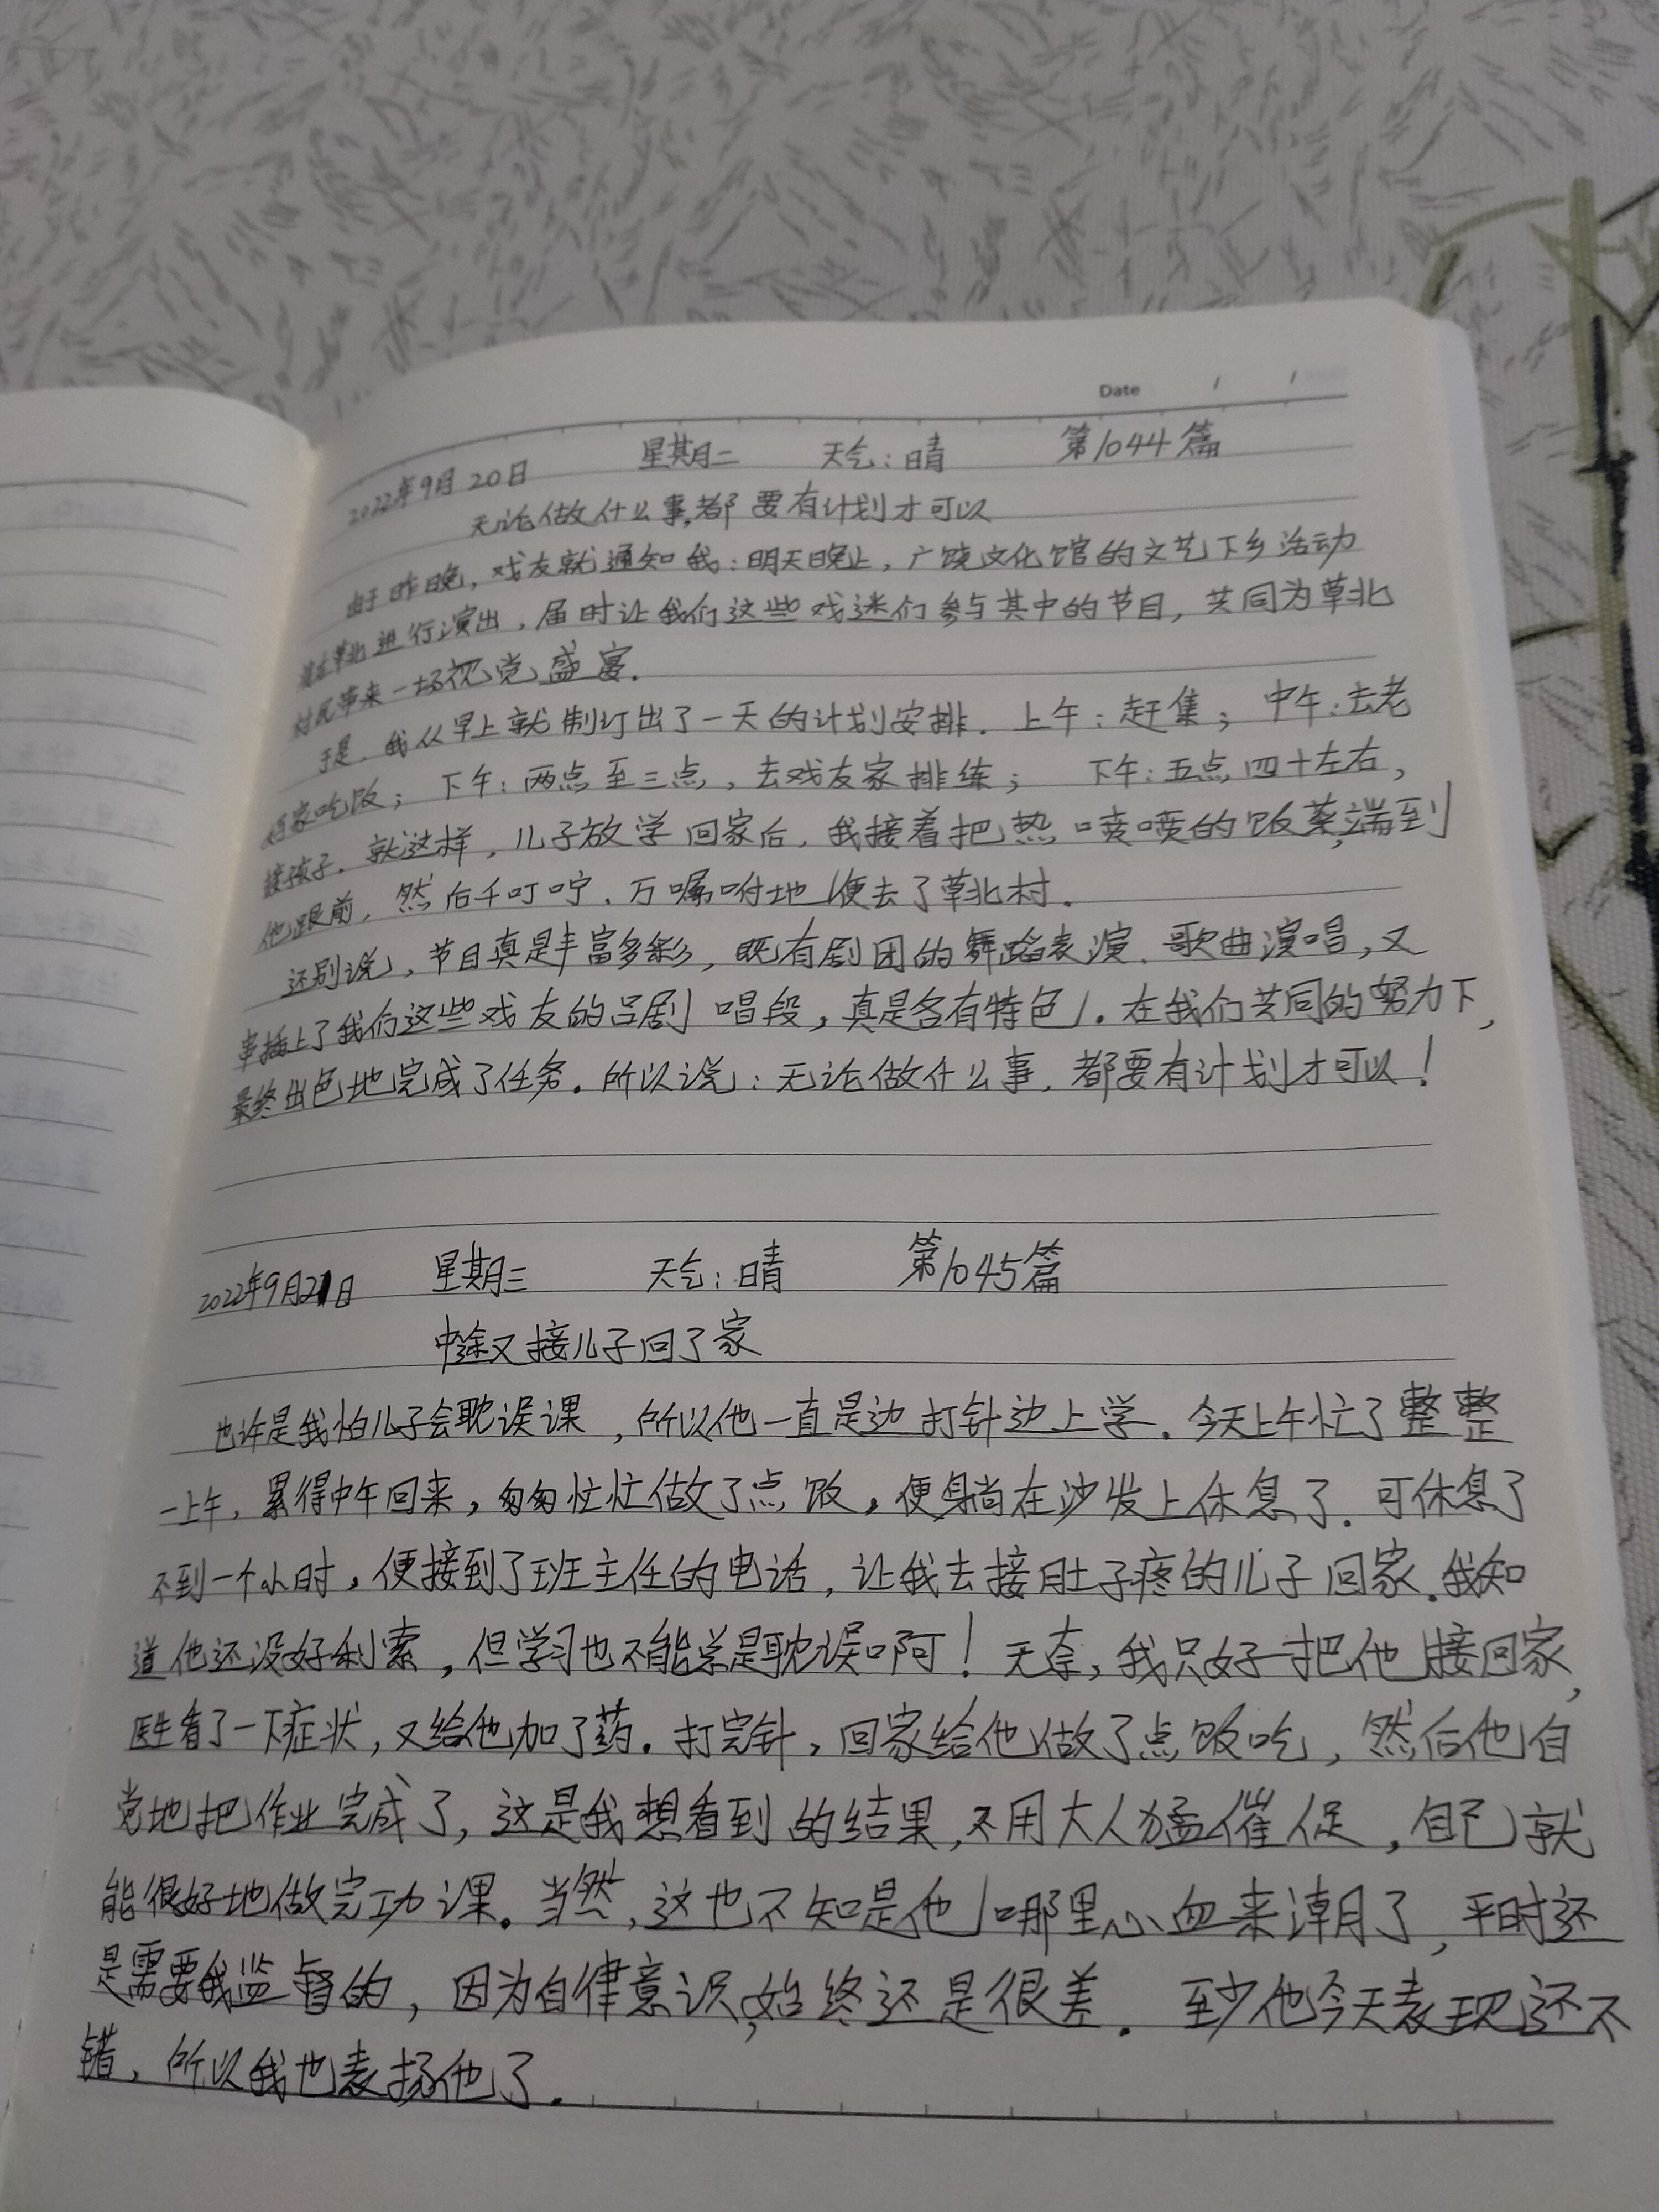 Date / /
2022年9月20日 星期二 天气:晴 第1044篇
无论做什么事,都要有计划才可以
由于昨晚,戏友就通知我:明天晚上,广饶文化馆的文艺下乡活动
在草北进行演出,届时让我们这些戏迷们参与其中的节目,共同为草北
村民带来一场视觉盛宴.
于是,我从早上就制订出了一天的计划安排.上午:赶集;中午:去老
家吃饭;下午:两点至三点,去戏友家排练;下午:五点四十左右,
接孩子.就这样,儿子放学回家后,我接着把热喷喷的饭菜,端到
他跟前,然后千叮咛,万嘱咐地便去了草北村.
还别说,节目真是丰富多彩,既有剧团的舞蹈表演、歌曲演唱,又
串插上了我们这些戏友的吕剧唱段,真是各有特色.在我们共同的努力下,
最终出色地完成了任务.所以说:无论做什么事,都要有计划才可以!
2022年9月21日 星期三 天气:晴 第1045篇
中途又接儿子回了家
也许是我怕儿子会耽误课,所以他一直是边打针边上学.今天上午忙了整整
一上午,累得中午回来,匆匆忙忙做了点饭,便躺在沙发上休息了.可休息了
不到一个小时,便接到了班主任的电话,让我去接肚子疼的儿子回家.我知
道他还没好利索,但学习也不能总是耽误啊!无奈,我只好把他接回家,
医生看了一下症状,又给他加了药.打完针,回家给他做了点饭吃,然后他自
觉地把作业完成了,这是我想看到的结果,不用大人猛催促,自己就
能很好地做完功课.当然,这也不知是他哪里心血来潮了,平时还
是需要我监督的,因为自律意识,始终还是很差.至少他今天表现还不
错,所以我也表扬他了.